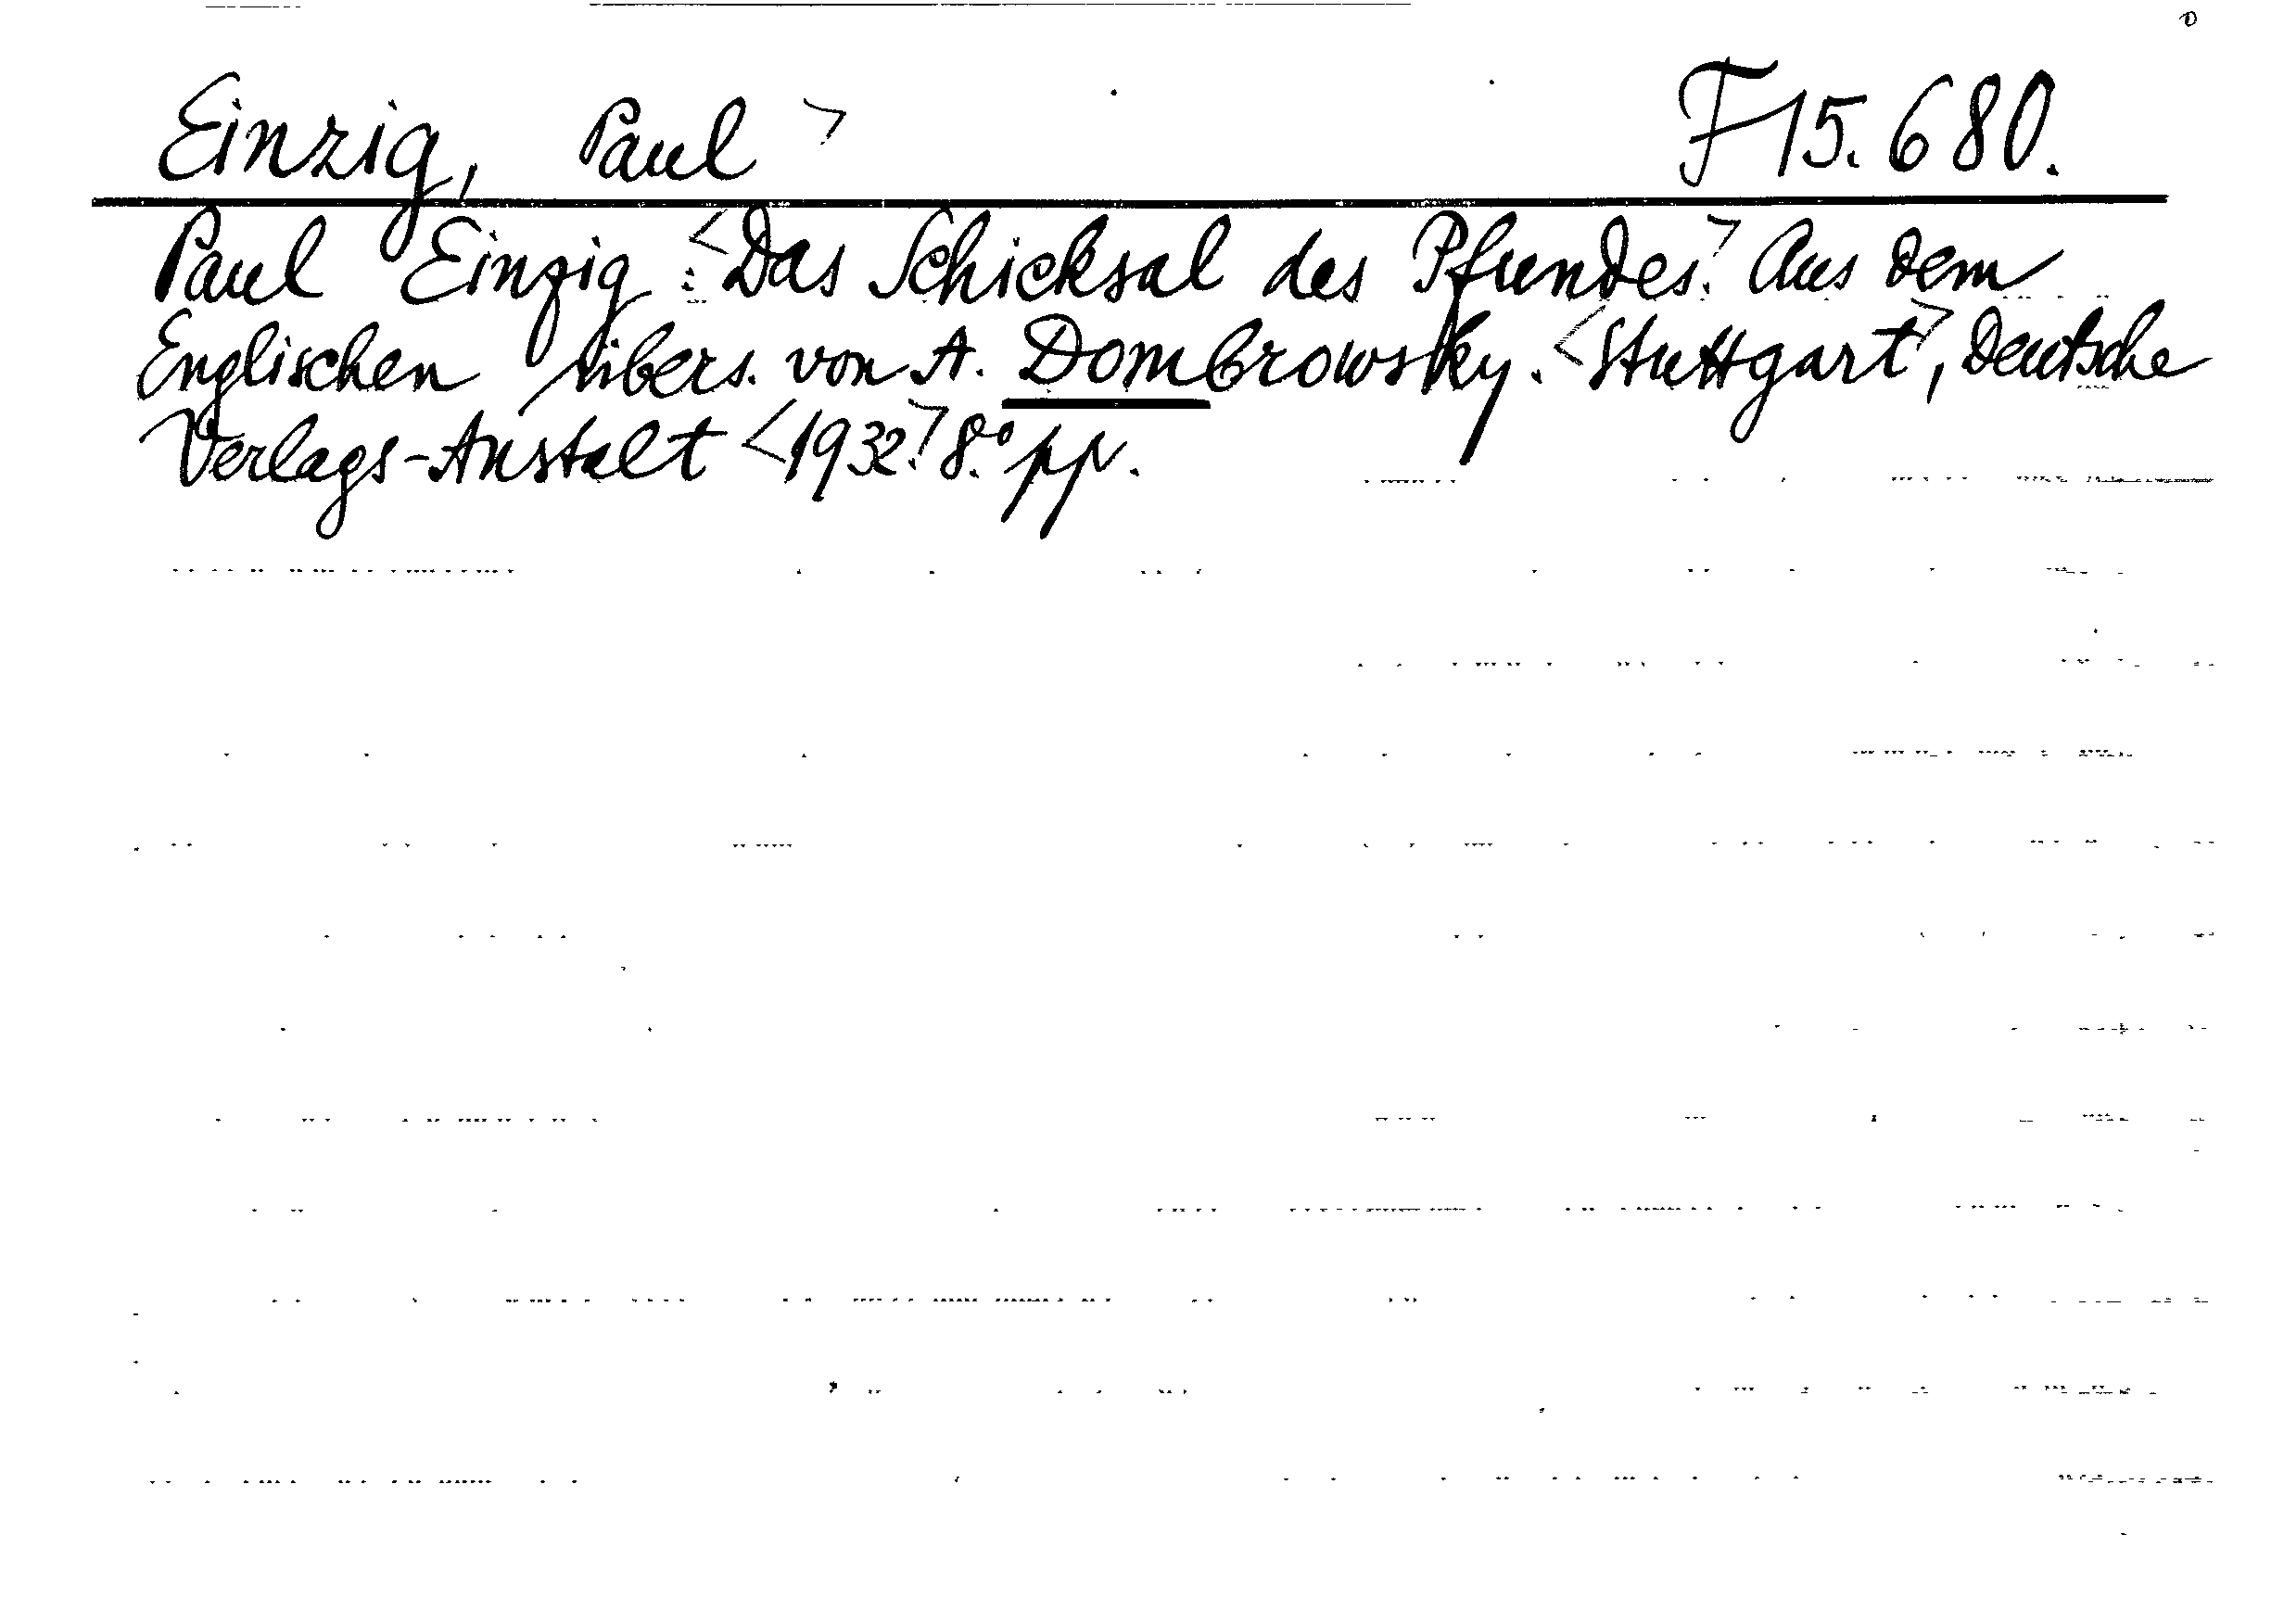 Einzig, Paul > F 15.680.
Paul Einzig : <Das Schicksal des Pfundes.> Aus dem
Englischen übers. von A. Dombrowsky. <Stuttgart>, Deutsche
Verlags-Anstalt <1932.> 8.° pp.